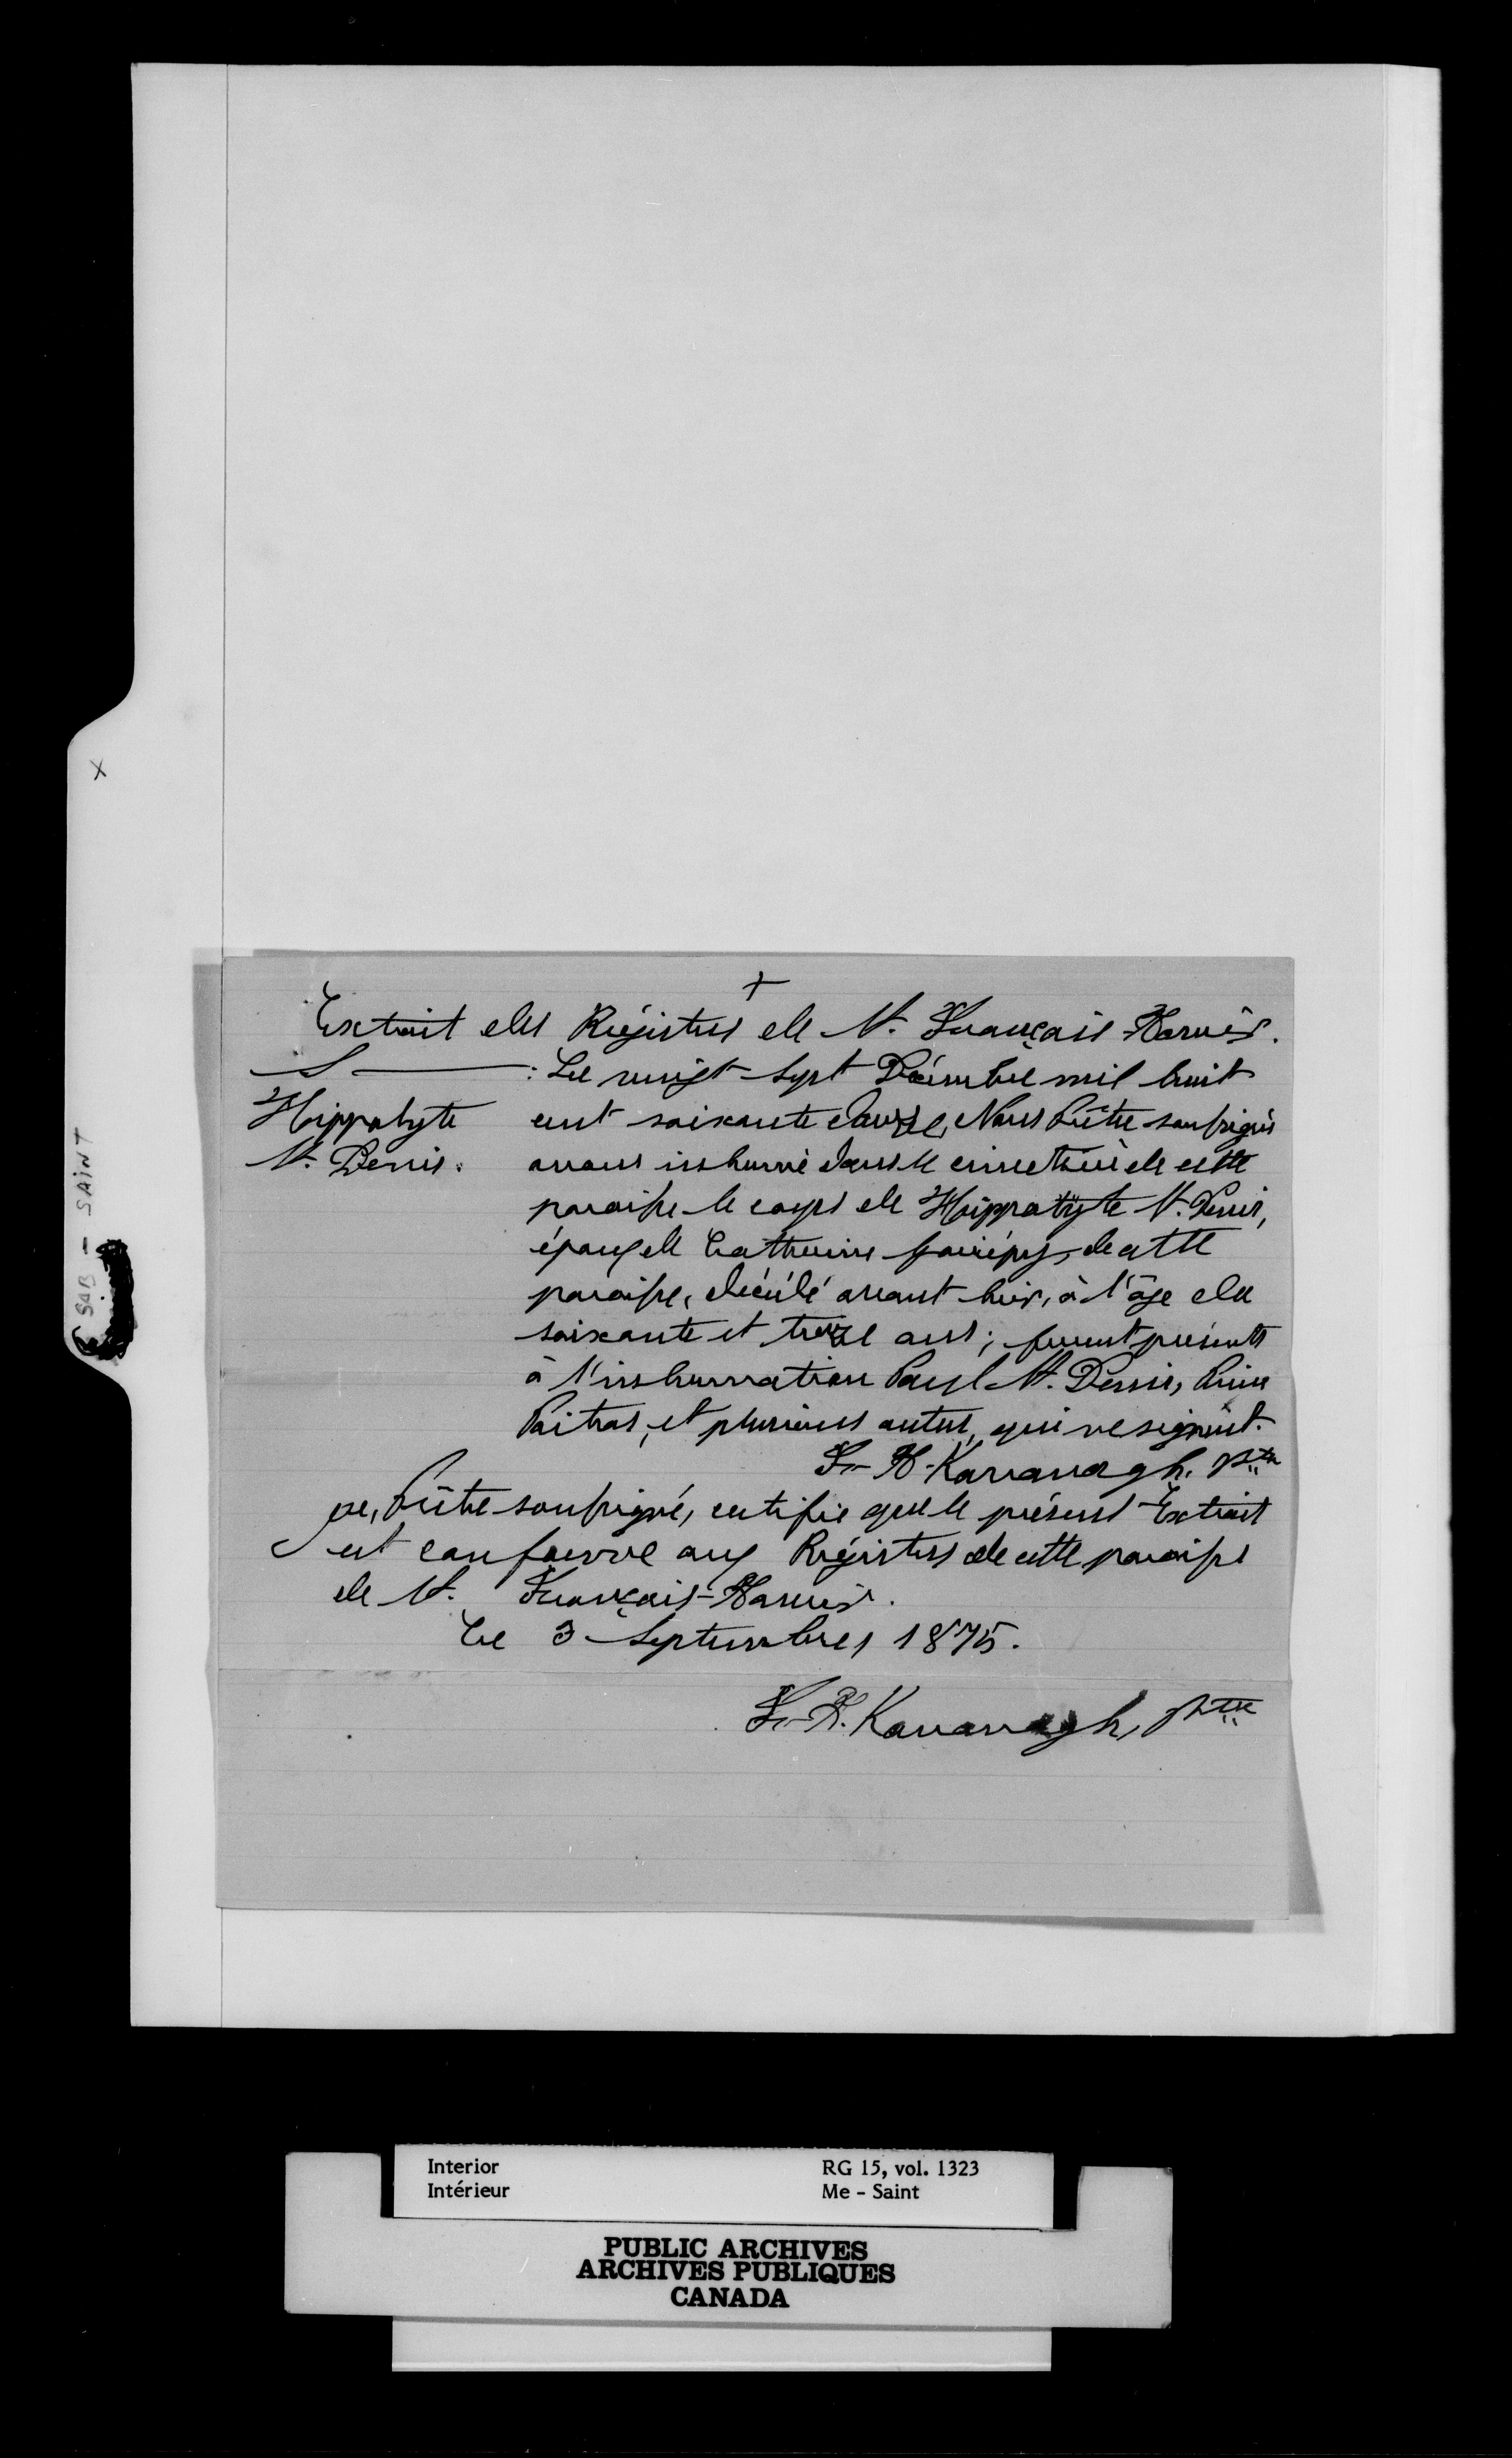 X
SAB - SAINT
+
Extrait des Régistres de St. François-Xavier.
S : Le vingt-sept Décembre mil huit
Hippolyte cent soixante douze, Nous Prêtre soussigné
St. Denis. avons inhumé dans le cimetière de cette
paroisse le corps de Hippolyte St. Denis,
époux de Catherine de cette
paroisse, décédé avant hier, à l'âge de
soixante et treize ans; furent présents
à l'inhumation Paul St. Denis,
Poitras, et plusieurs autres, qui ne signèrent.
F.-X. Kavanagh. Ptre
Je, Prêtre soussigné, certifie que le présent Extrait
est conforme aux Régistres de cette paroisse
de St. François-Xavier.
Ce 3 Septembre, 1875.
F.-X. Kavanagh, Ptre
Interior RG 15, vol. 1323
Intérieur Me - Saint
PUBLIC ARCHIVES
ARCHIVES PUBLIQUES
CANADA